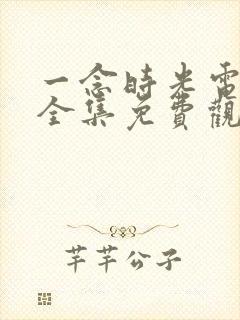 一念時光電
全集免費觀
芊芊公子